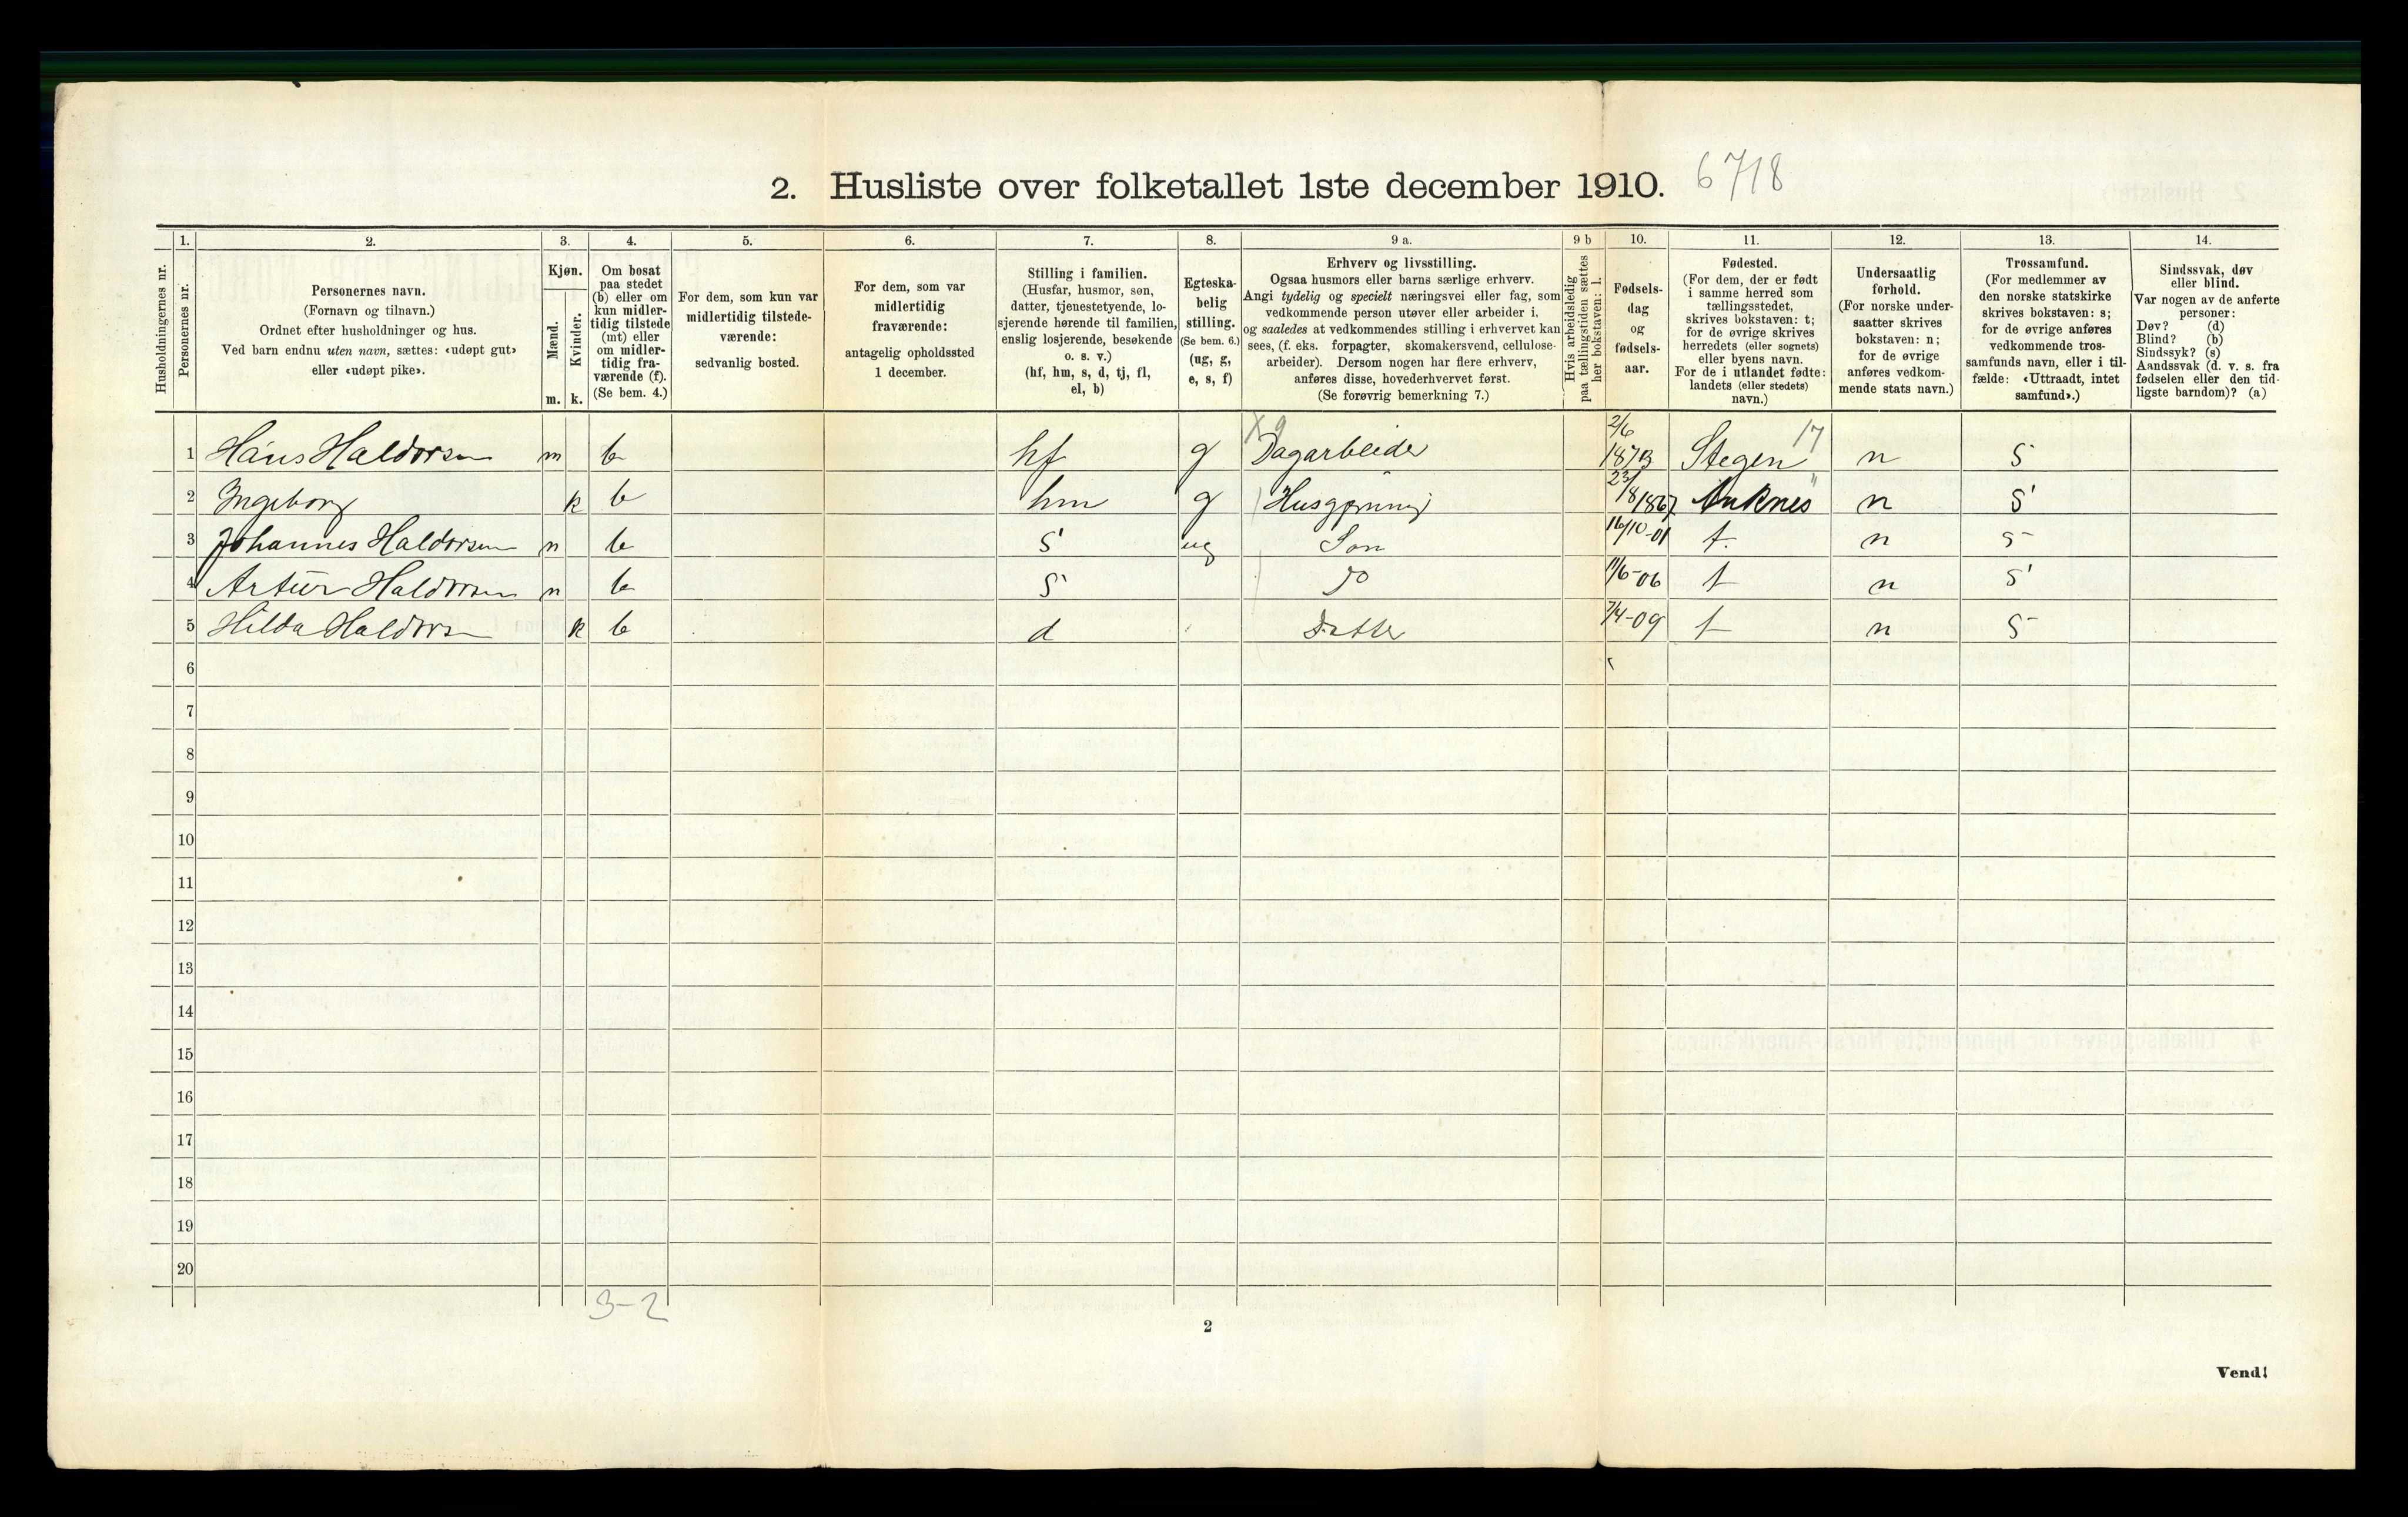 2. Husliste over folketallet 1ste december 1910. 6718
Husholdningernes nr.
1.
Personernes nr.
2.
Personernes navn.
(Fornavn og tilnavn.)
Ordnet efter husholdninger og hus.
Ved barn endnu uten navn, sættes: «udøpt gut»
eller «udøpt pike».
3.
Kjøn.
Mænd.
Kvinder.
m. k.
4.
Om bosat
paa stedet
(b) eller om
kun midler-
tidig tilstede
(mt) eller
om midler-
tidig fra-
værende (f).
(Se bem. 4.)
5.
For dem, som kun var
midlertidig tilstede-
værende:
sedvanlig bosted.
6.
For dem, som var
midlertidig
fraværende:
antagelig opholdssted
1 december.
7.
Stilling i familien.
(Husfar, husmor, søn,
datter, tjenestetyende, lo-
sjerende hørende til familien,
enslig losjerende, besøkende
o. s. v.)
(hf, hm, s, d, tj, fl,
el, b)
8.
Egteska-
belig
stilling.
(Se bem. 6.)
(ug, g,
e, s, f)
9 a.
Erhverv og livsstilling.
Ogsaa husmors eller barns særlige erhverv.
Angi tydelig og specielt næringsvei eller fag, som
vedkommende person utøver eller arbeider i,
og saaledes at vedkommendes stilling i erhvervet kan
sees, (f. eks. forpagter, skomakersvend, cellulose-
arbeider). Dersom nogen har flere erhverv,
anføres disse, hovederhvervet først.
(Se forøvrig bemerkning 7.)
9 b
Hvis arbeidsledig
paa tællingstiden sættes
her bokstaven: l.
10.
Fødsels-
dag
og
fødsels-
aar.
11.
Fødested.
(For dem, der er født
i samme herred som
tællingsstedet,
skrives bokstaven: t;
for de øvrige skrives
herredets (eller sognets)
eller byens navn.
For de i utlandet fødte:
landets (eller stedets)
navn.)
12.
Undersaatlig
forhold.
(For norske under-
saatter skrives
bokstaven: n;
for de øvrige
anføres vedkom-
mende stats navn.)
13.
Trossamfund.
(For medlemmer av
den norske statskirke
skrives bokstaven: s;
for de øvrige anføres
vedkommende tros-
samfunds navn, eller i til-
fælde: «Uttraadt, intet
samfund».)
14.
Sindssvak, døv
eller blind.
Var nogen av de anførte
personer:
Døv? (d)
Blind? (b)
Sindssyk? (s)
Aandssvak (d. v. s. fra
fødselen eller den tid-
ligste barndom)? (a)
1 Hans Haldorsen m b hf g Dagarbeider 2/6 1873 Stegen 17 n s
2 Ingeborg k b hm g Husgjerning 23/8 1867 Anknes " n s
3 Johannes Haldorsen m b s ug Søn 16/10-01 t. n s
4 Artur Haldorsen m b s Do 11/6-06 t n s
5 Hilda Haldorsen k b d Datter 7/4-09 t n s
6
7
8
9
10
11
12
13
14
15
16
17
18
19
20
3-2
2
Vend!